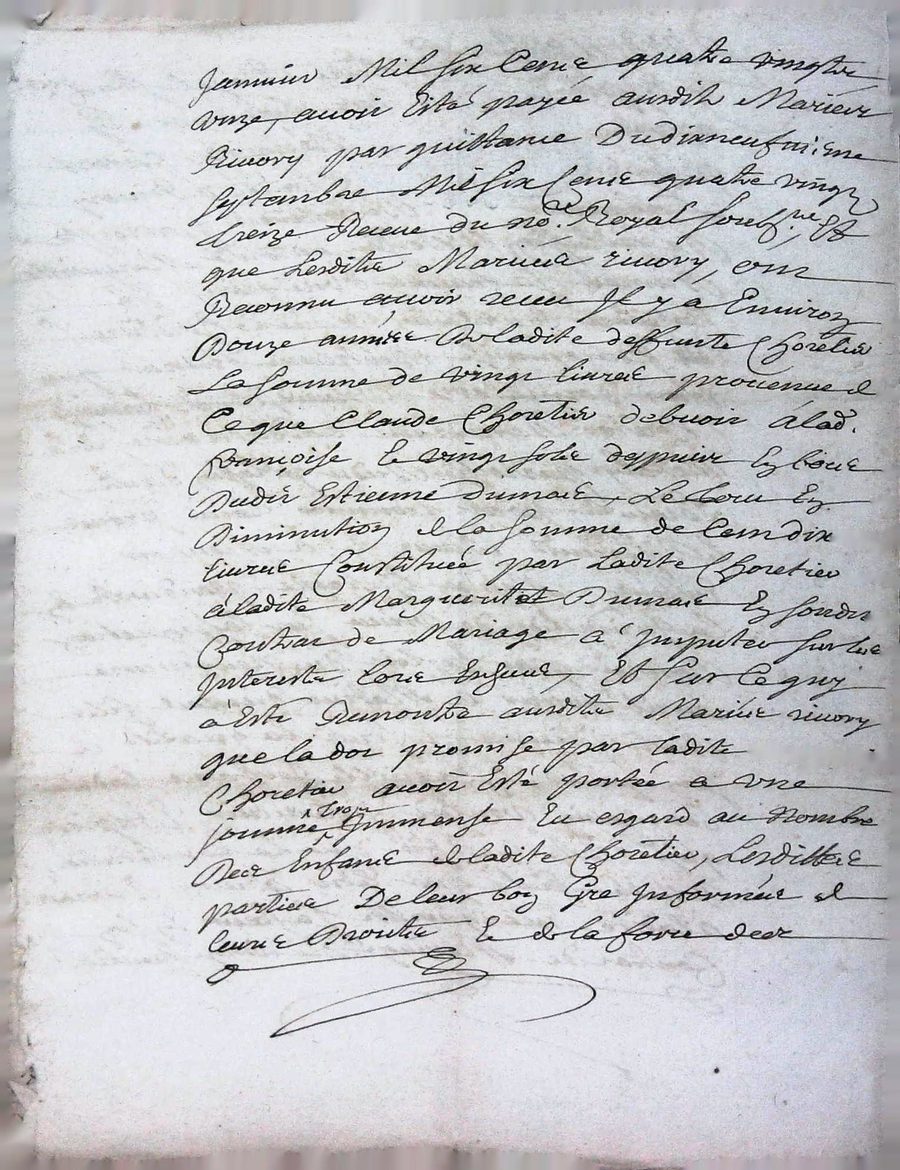 Januier Mil Six Cens quatre vingts
unze, auoir Esté payée ausdits Mariéz
Riuory par quittance Du dixneufuieme
septambre Mil Six Cens quatre vingt
treize Receue du no.re Royal soubs.ne, Et
que Lesdits Mariés riuory, ont
Reconnu auoir receu Il y a Enuiron
Douze années De ladite deffunte Choretier
La somme de vingt liures prouenue de
Ce que Claude Choretier debuoit à lad.
Françoise Et vingt sols despuis En
Dudit Estienne Dumas, Le tout En
Diminution de la somme de Cent dix
liures Constituée par Ladite Choretier
à ladite Marguerite Dumas En sondit
Contrat de Mariage à Imputer sur les
Interests Corus Et sur Ce quy
à Esté Remontré ausdits Mariés riuory
que la dot promise par ladite
Choretier auoit Esté portée a vne
somme, trop Immense Eu esgard au Nombre
Des Enfans de ladite Choretier, Lesdittes
parties De leur bon Gré Informées de
leurs Droits Et de la force des